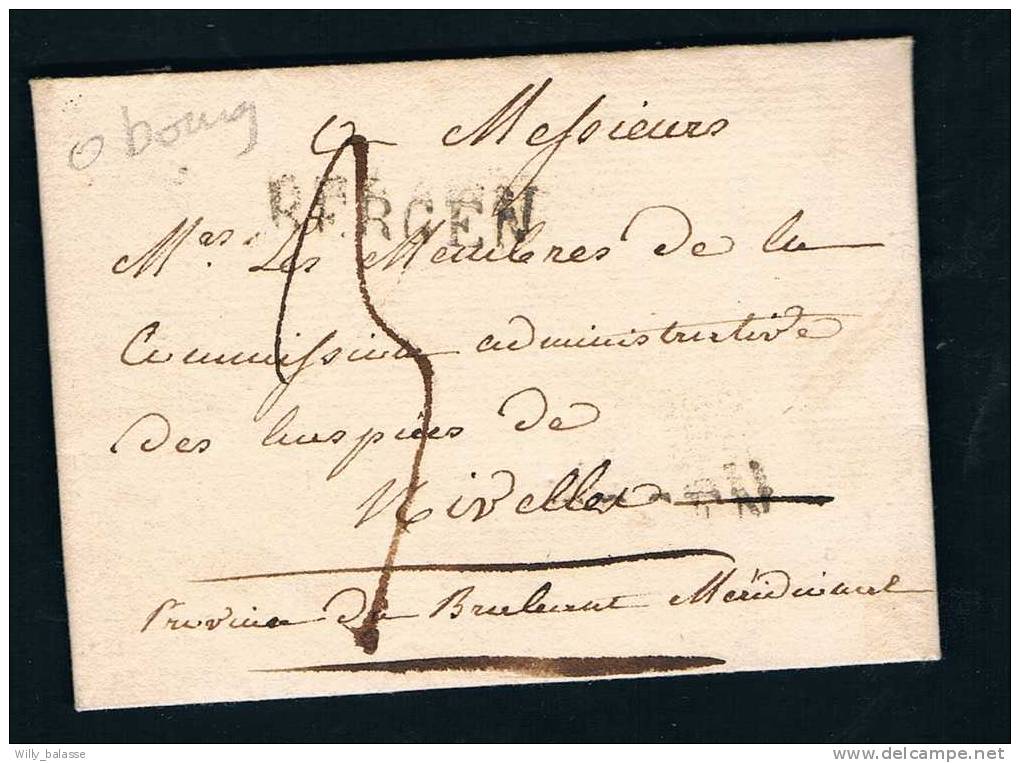 Obourg
a Messieurs
BERGEN
Mrs. Les Membres de la
Commission administrative
des hospices de
Nivelles
Province du Brabant Méridional
Willy_balasse
delcampe.net